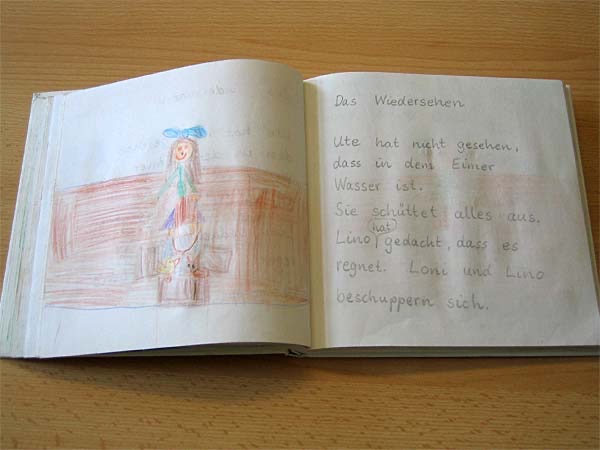 Das Wiedersehen
Ute hat nicht gesehen,
dass in dem Eimer
Wasser ist.
Sie schüttet alles aus.
Lino hat gedacht, dass es
regnet. Loni und Lino
beschuppern sich.